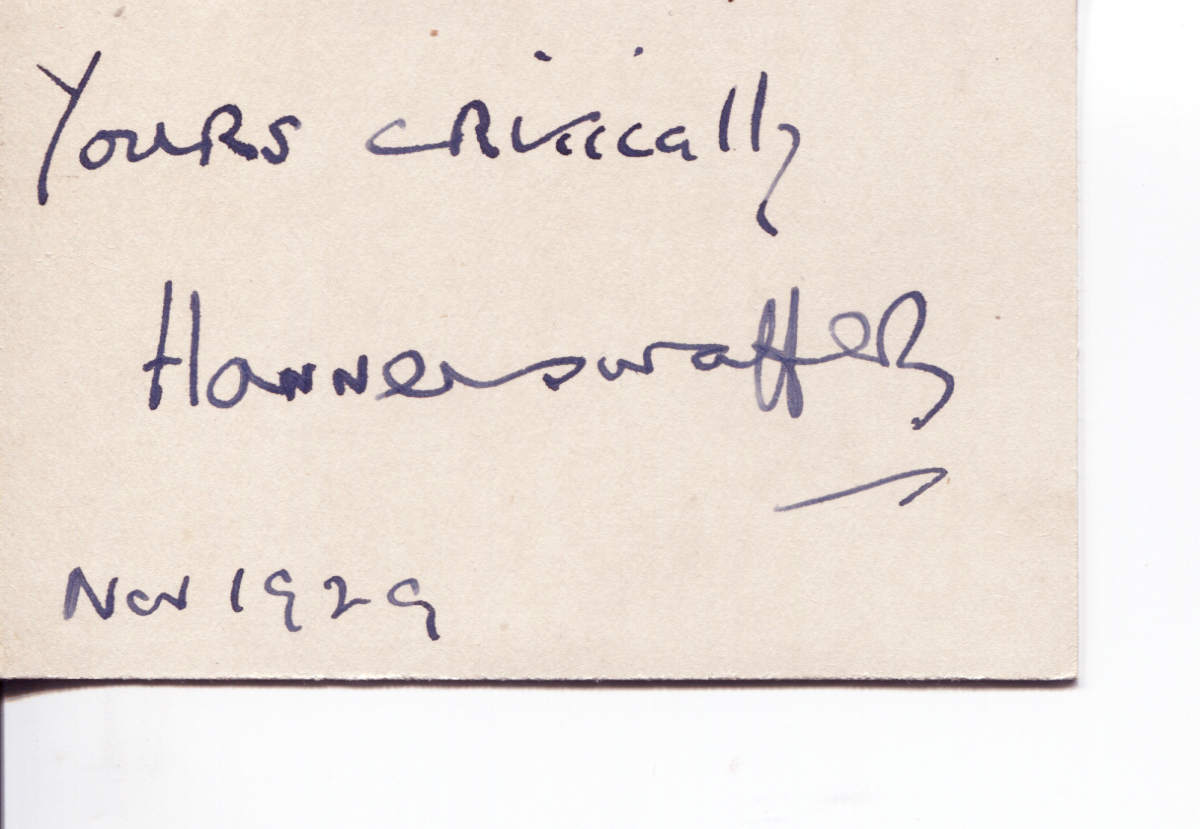 Yours critically
Hannen Swaffer
Nov 1929